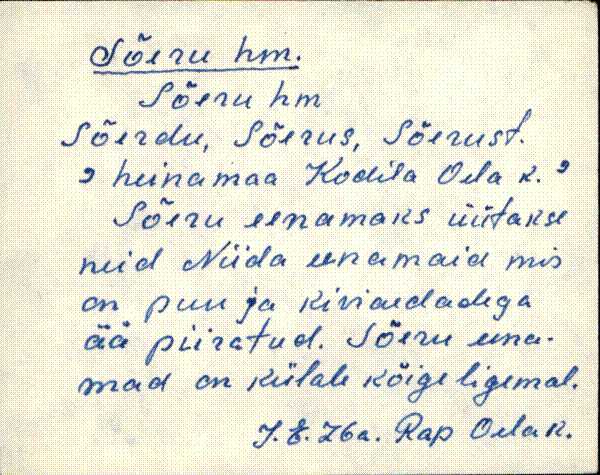 Sõeru hm.
Sõeru hm
Sõerdu, Sõerus, Sõerust.
, heinamaa Kodila Oela k. ,
Sõeru eenamaks üütakse
neid Niida eenamaid mis
on puu ja kiviaedadega
ää piiratud. Sõeru eena-
mad on külale kõige ligemal.
J. E. 76a. Rap Oela k.